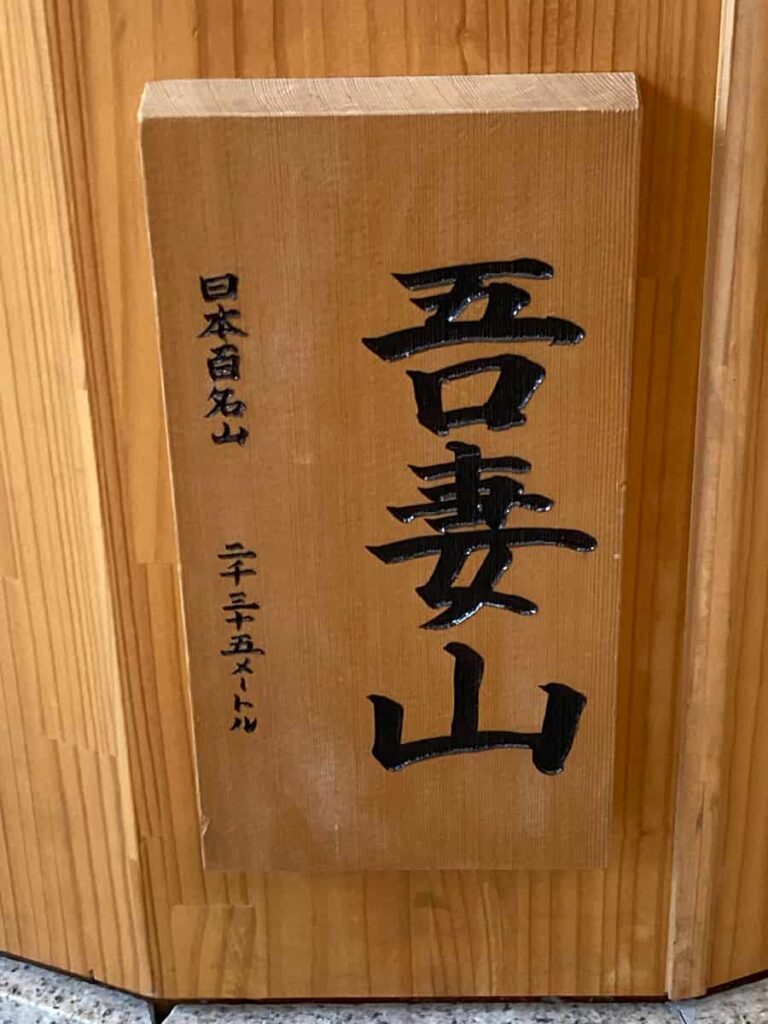 吾妻山
日本百名山 二千三十五メートル